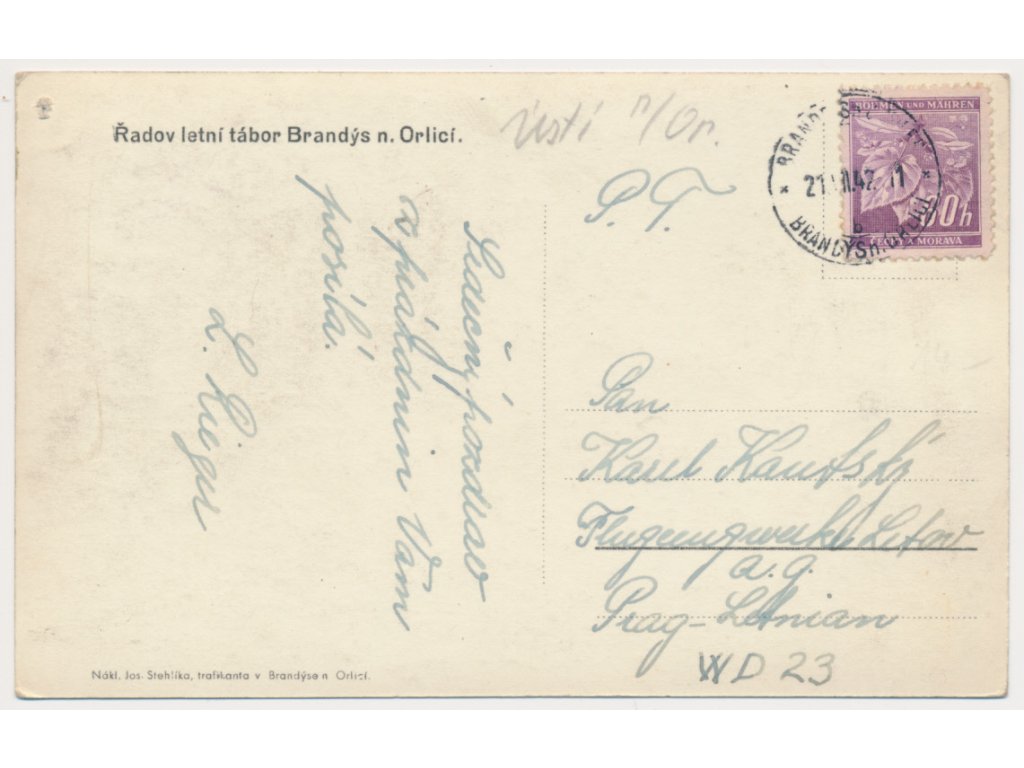 Řadov letní tábor Brandýs n. Orlicí.
Ústí n/Or.
BÖHMEN UND MÄHREN
60 h
ČECHY A MORAVA
BRANDÝS N. ORLICÍ
b
P. T.
Srdečný pozdrav
z prázdnin Vám
posílá
L. Rieger
Pan
Karel Kautský
Flugzeugwerke Letov
a. g.
Prag-Letnian
WD 23
Nákl. Jos. Stehlíka, trafikanta v Brandýse n Orlicí.